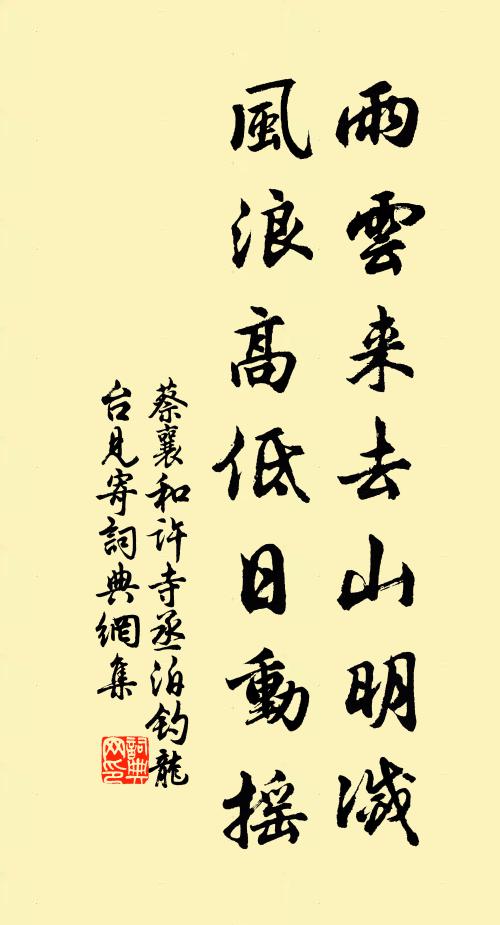 雨雲来去山明滅
風浪高低日動摇
蔡襄和許寺丞泊釣龍
台見寄詞典網集
詞典
网印